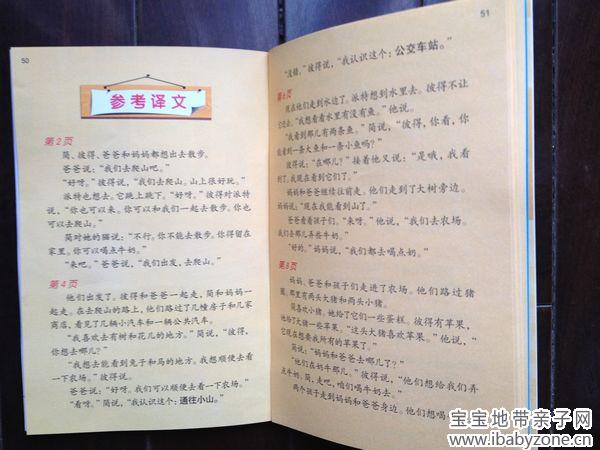 50
参考译文
第2页
简、彼得、爸爸和妈妈都想出去散步。
爸爸说:“我们去爬山吧。”
“好呀。”彼得说,“我们去爬山。山上很好玩。”
派特也想去。它跳上跳下。“好呀。”彼得对派特
说,“你也可以来。你可以和我们一起去散步。你也
可以去爬山。”
简对她的猫说:“不行。你不能去散步。你得留在
家里。你可以喝点牛奶。”
“来吧。”爸爸说,“我们出发,去爬山。”
第4页
他们出发了。彼得和爸爸一起走,简和妈妈一
起走。在去爬山的路上,他们路过了几幢房子和几家
商店,看见了几辆小汽车和一辆公共汽车。
“我喜欢去有树和花儿的地方。”简说,“彼得,
你想去哪儿?”
“我想去能看到兔子和马的地方。我想顺便去看
一下农场。”彼得说。
爸爸说:“好呀。我们可以顺便去看一下农场。”
“看呀。”简说,“我认识这个:通往小山。”
51
“没错。”彼得说,“我认识这个:公交车站。”
第6页
现在他们走到水边了。派特想到水里去。彼得不让
它进去。“我想看看水里有没有鱼。”他说。
“我看到那儿有两条鱼。”简说,“彼得,你看,你
能看到一条大鱼和一条小鱼吗?”
彼得说:“在哪儿?”接着他又说:“是哦,我看
到了。我现在看到它们了。”
妈妈和爸爸继续往前走。他们走到了大树旁边。
妈妈说:“现在我能看到山了。”
爸爸看看孩子们。“来呀。”他说,“我们去农场。
我们去那儿弄些牛奶。”
“好的。”妈妈说,“我们都去喝点奶。”
第8页
妈妈、爸爸和孩子们走进了农场。他们路过猪
圈。那里有两头大猪和两头小猪。
简喜欢小猪。她给了它们一些蛋糕。彼得有苹果,
他给了大猪一些苹果。“这头大猪喜欢苹果。”他说,“
它现在想要我所有的苹果了。”
简说:“妈妈和爸爸去哪儿了?”
“他们在奶牛那儿。”彼得说,“他们想给我们弄
点牛奶。简,走吧,咱们喝牛奶去。”
两个孩子走到妈妈和爸爸身边。他们想喝
宝宝地带亲子网
www.ibabyzone.cn